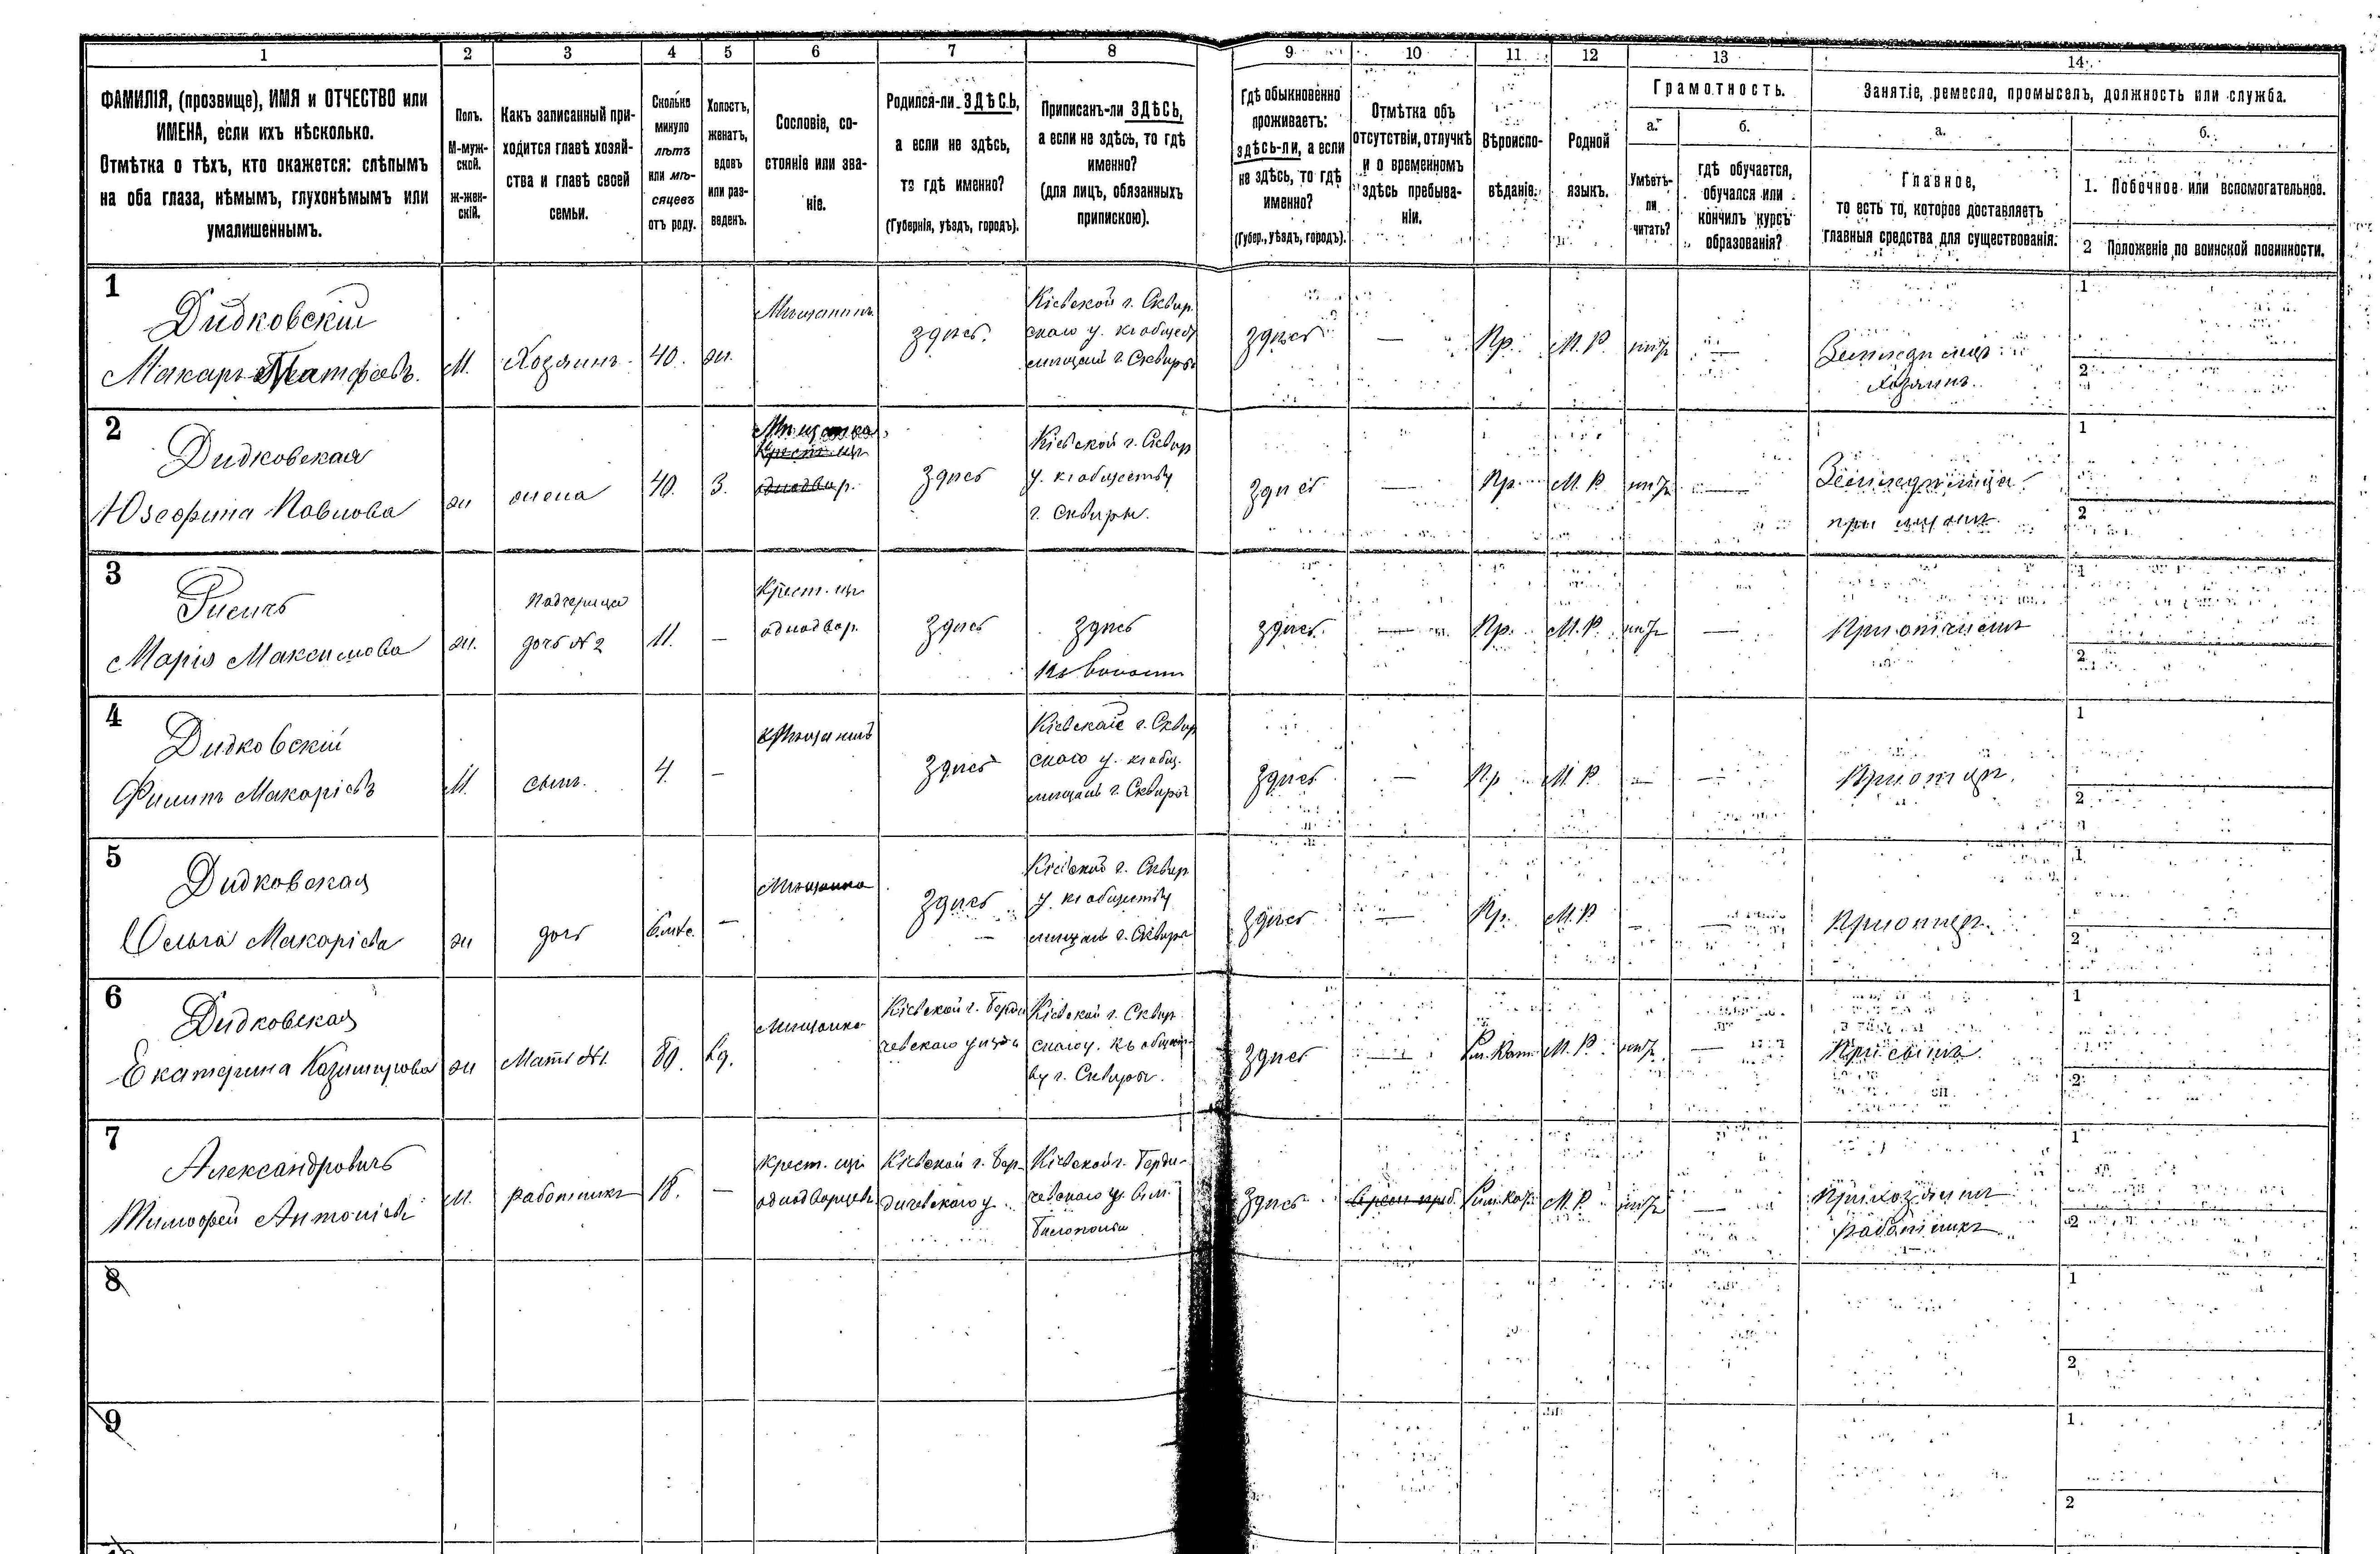 1 2 3 4 5 6 7 8 9 10 11 12 13 14
ФАМИЛІЯ, (прозвище), ИМЯ и ОТЧЕСТВО или
ИМЕНА, если ихъ нѣсколько.
Отмѣтка о тѣхъ, кто окажется: слѣпымъ
на оба глаза, нѣмымъ, глухонѣмымъ или
умалишеннымъ.
Полъ.
М-муж-
ской.
ж-жен-
скій.
Какъ записанный при-
ходится главѣ хозяй-
ства и главѣ своей
семьи.
Сколько
минуло
лѣтъ
или мѣ-
сяцевъ
отъ роду.
Холостъ,
женатъ,
вдовъ
или раз-
веденъ.
Сословіе, со-
стояніе или зва-
ніе.
Родился-ли ЗДѢСЬ,
а если не здѣсь,
то гдѣ именно?
(Губернія, уѣздъ, городъ).
Приписанъ-ли ЗДѢСЬ,
а если не здѣсь, то гдѣ
именно?
(для лицъ, обязанныхъ
припискою).
Гдѣ обыкновенно
проживаетъ:
здѣсь-ли, а если
не здѣсь, то гдѣ
именно?
(Губер., уѣздъ, городъ).
Отмѣтка объ
отсутствіи, отлучкѣ
и о временномъ
здѣсь пребыва-
ніи.
Вѣроиспо-
вѣданіе.
Родной
языкъ.
Грамотность.
а.
Умѣетъ-
ли
читать?
б.
гдѣ обучается,
обучался или
кончилъ курсъ
образованія?
Занятіе, ремесло, промыселъ, должность или служба.
а.
Главное,
то есть то, которое доставляетъ
главныя средства для существованія.
б.
1. Побочное или вспомогательное.
2 Положеніе по воинской повинности.
1
Дидковскій
Макаръ Матфѣевъ.
М.
Хозяинъ
40.
жи.
Мѣщанинъ
Здѣсь.
Кіевской г. Сквир
скаго у. къ общест
мѣщанъ г. Сквиры
Здѣсь
—
Пр.
М. Р.
нѣтъ
—
Земледѣлецъ
Хозяинъ.
1
2
2
Дидковская
Юзефина Павлова
жена
40.
З.
Мѣщанка
Крест. изъ
однодвор.
Здѣсь
Кіевской г. Сквир
у. къ обществу
г. Сквиры.
Здѣсь
—
Пр.
М. Р.
нѣтъ
—
при мужѣ
1
2
3
Марія Максимова
Падчерица
дочь № 2
11.
—
Крест. изъ
однодвор.
Здѣсь
Здѣсь
къ волости
Здѣсь.
—
Пр.
М. Р.
нѣтъ
—
При отчимѣ
2
4
Дидковскій
Филипъ Макаріевъ
М.
сынъ.
4.
—
Мѣщанинъ
Здѣсь
Кіевской г. Сквир
скаго у. къ общ.
мѣщанъ г. Сквиры
Здѣсь
—
Пр
М. Р.
—
—
При отцѣ.
1
2
5
Дидковская
Ольга Макаріева
дочь
—
Мѣщанка
Здѣсь
Кіевской г. Сквир
у. къ обществу
мѣщанъ г. Сквиры
Здѣсь
—
Пр.
М. Р
—
—
При отцѣ.
1
2
6
Дидковская
Екатерина Казимирова
Мать № 1.
80.
Вд.
Мѣщанка
Кіевской г. Берди
чевскаго уѣзда
Кіевской г. Сквир
скаго у. къ общест
ву г. Сквиры.
Здѣсь
—
Рим. Кат.
М. Р.
нѣтъ
—
При сынѣ.
1
2
7
Александровичъ
Тимофей Антоніевъ
М.
работникъ
18.
—
Крест. изъ
однодворцевъ
Кіевской г. Бер-
дичевскаго у.
Кіевской г. Берди-
чевскаго у.
Здѣсь
Времен. приб.
Рим. Кат.
М. Р.
нѣтъ
—
работникъ
1
2
8
1
2
9
1
2